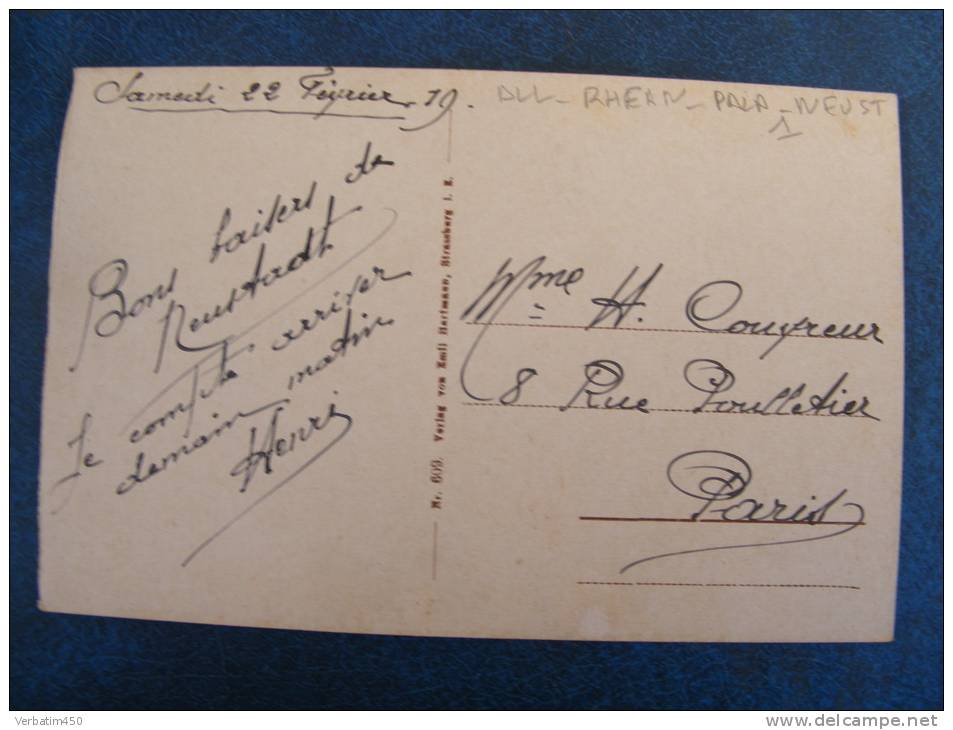 Samedi 22 Février 19.
ALL - RHEAN - PALA - NEUST
1
Bons baisers de
Neustadt
Je compte arriver
demain matin
Henri
Nr. 609. Verlag von Emil Hartmann, Strassburg i. E.
Mme H. Couvreur
8 Rue Poulletier
Paris
Verbatim450
www.delcampe.net